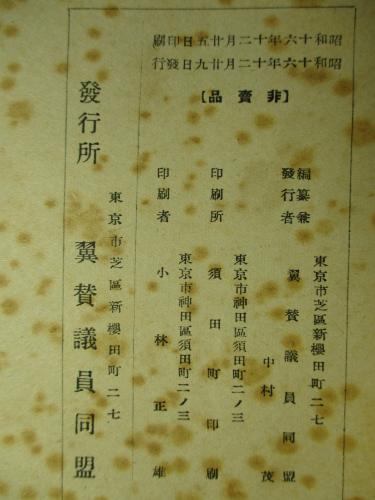 昭和十六年十二月廿五日印刷
昭和十六年十二月廿九日發行
【非賣品】
東京市芝區新櫻田町二七
編纂兼
發行者
翼贊議員同盟
中村茂
東京市神田區須田町二ノ三
印刷所
須田町印刷
東京市神田區須田町二ノ三
印刷者
小林正雄
東京市芝區新櫻田町二七
發行所
翼贊議員同盟